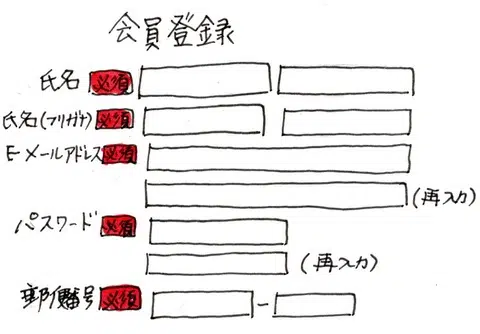 会員登録
氏名 必須
氏名(フリガナ) 必須
Eメールアドレス 必須
(再入力)
パスワード 必須
(再入力)
郵便番号 必須 -